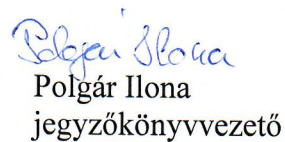 Polgár Ilona
Polgár Ilona
jegyzőkönyvvezető